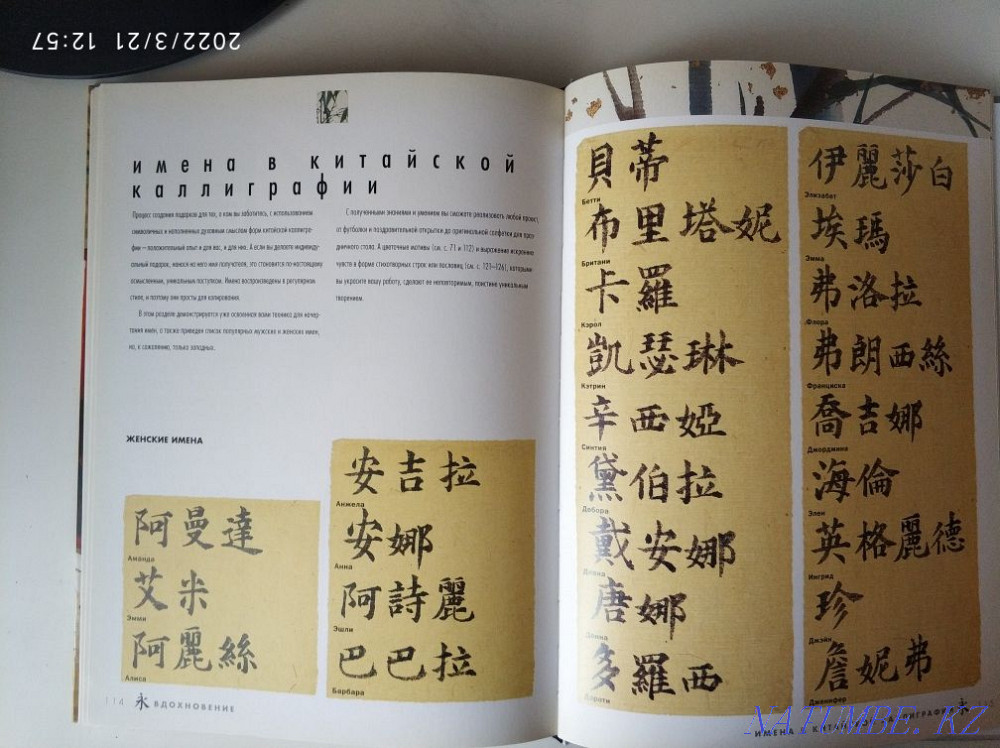 2022/3/21 12:57
имена в китайской
каллиграфии
Процесс создания подарков для тех, о ком вы заботитесь, с использованием
символичных и наполненных духовным смыслом форм китайской каллигра-
фии – положительный опыт и для вас, и для них. А если вы делаете индивиду-
альный подарок, нанося на него имя получателя, это становится по-настоящему
осмысленным, уникальным поступком. Имена воспроизведены в регулярном
стиле, и потому они просты для копирования.
В этом разделе демонстрируется уже освоенная вами техника для начер-
тания имен, а также приведен список популярных мужских и женских имен,
но, к сожалению, только западных.
С полученными знаниями и умением вы сможете реализовать любой проект,
от футболки и поздравительной открытки до оригинальной салфетки для праз-
дничного стола. А цветочные мотивы (см. с. 71 и 112) и выражение искренних
чувств в форме стихотворных строк или пословиц (см. с. 121–126), которыми
вы украсите вашу работу, сделают ее неповторимым, поистине уникальным
творением.
ЖЕНСКИЕ ИМЕНА
阿曼達
Аманда
艾米
Эмми
阿麗絲
Алиса
安吉拉
Анжела
安娜
Анна
阿詩麗
Эшли
巴巴拉
Барбара
114 永 ВДОХНОВЕНИЕ
貝蒂
Бетти
布里塔妮
Британи
卡羅
Кэрол
凱瑟琳
Кэтрин
辛西婭
Синтия
黛伯拉
Дебора
戴安娜
Диана
唐娜
Донна
多羅西
Дороти
伊麗莎白
Элизабет
埃瑪
Эмма
弗洛拉
Флора
弗朗西絲
Франциска
喬吉娜
Джорджина
海倫
Элен
英格麗德
Ингрид
珍
Джейн
詹妮弗
Дженнифер
ИМЕНА В КИТАЙСКОЙ КАЛЛИГРАФИИ 永 115
NATUMBE.KZ